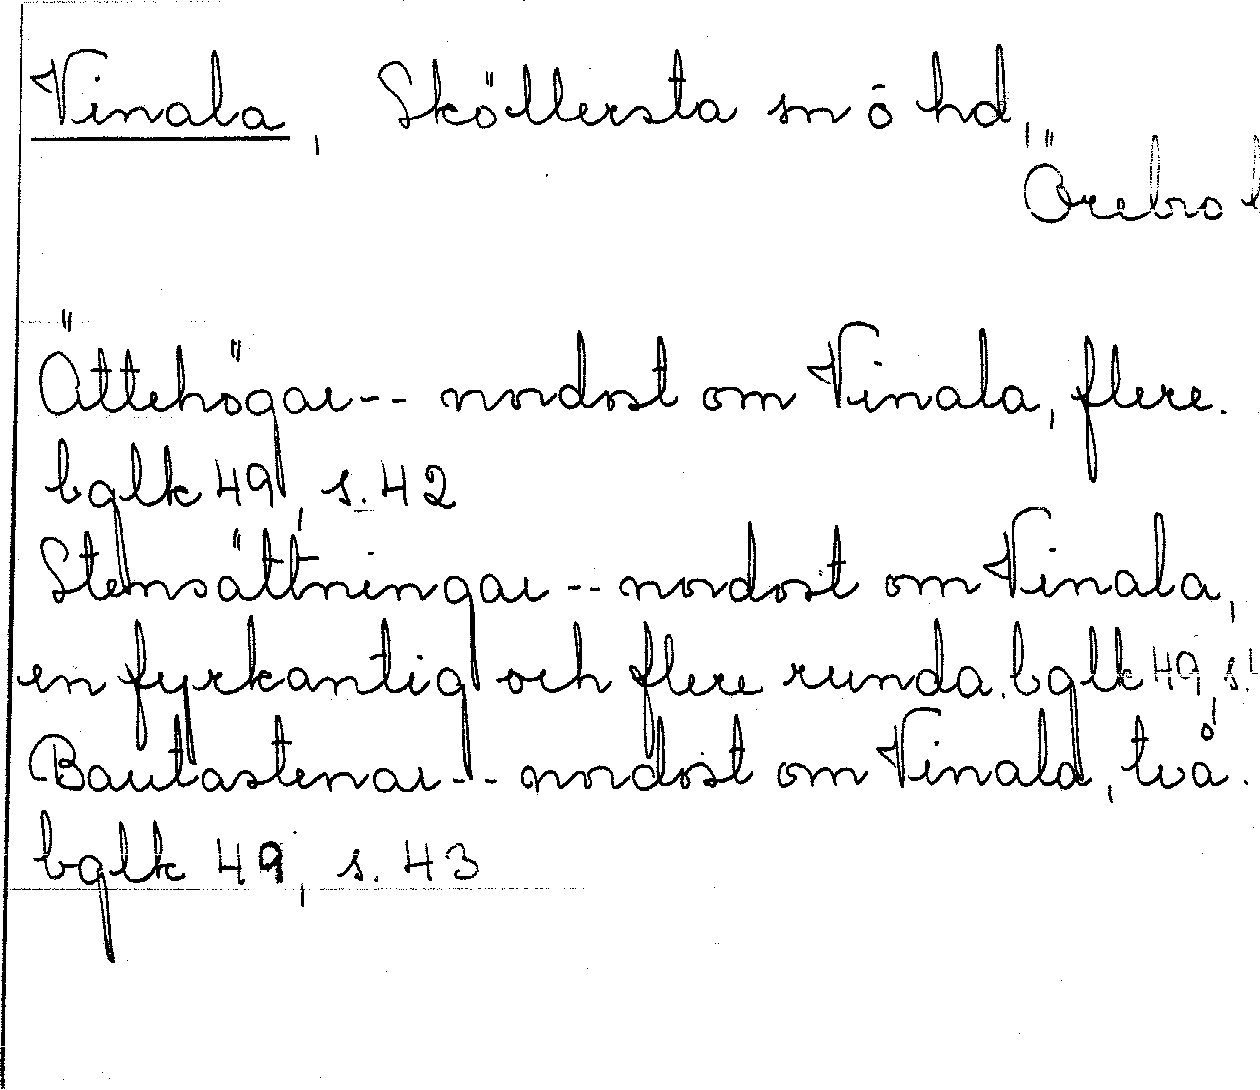 Vinala, Sköllersta sn ō hd,
Örebro l
Ättehögar-- nordost om Vinala, flere.
bglk 49, s. 42
Stensättningar -- nordost om Vinala,
en fyrkantig och flere runda. bglk 49, s. 4
Bautastenar -- nordost om Vinala, två.
bglk 49, s. 43